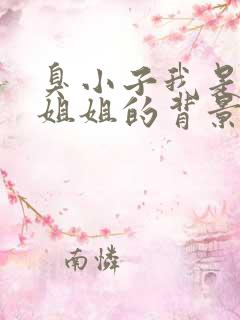 臭小子我是
姐姐的背景
南憐